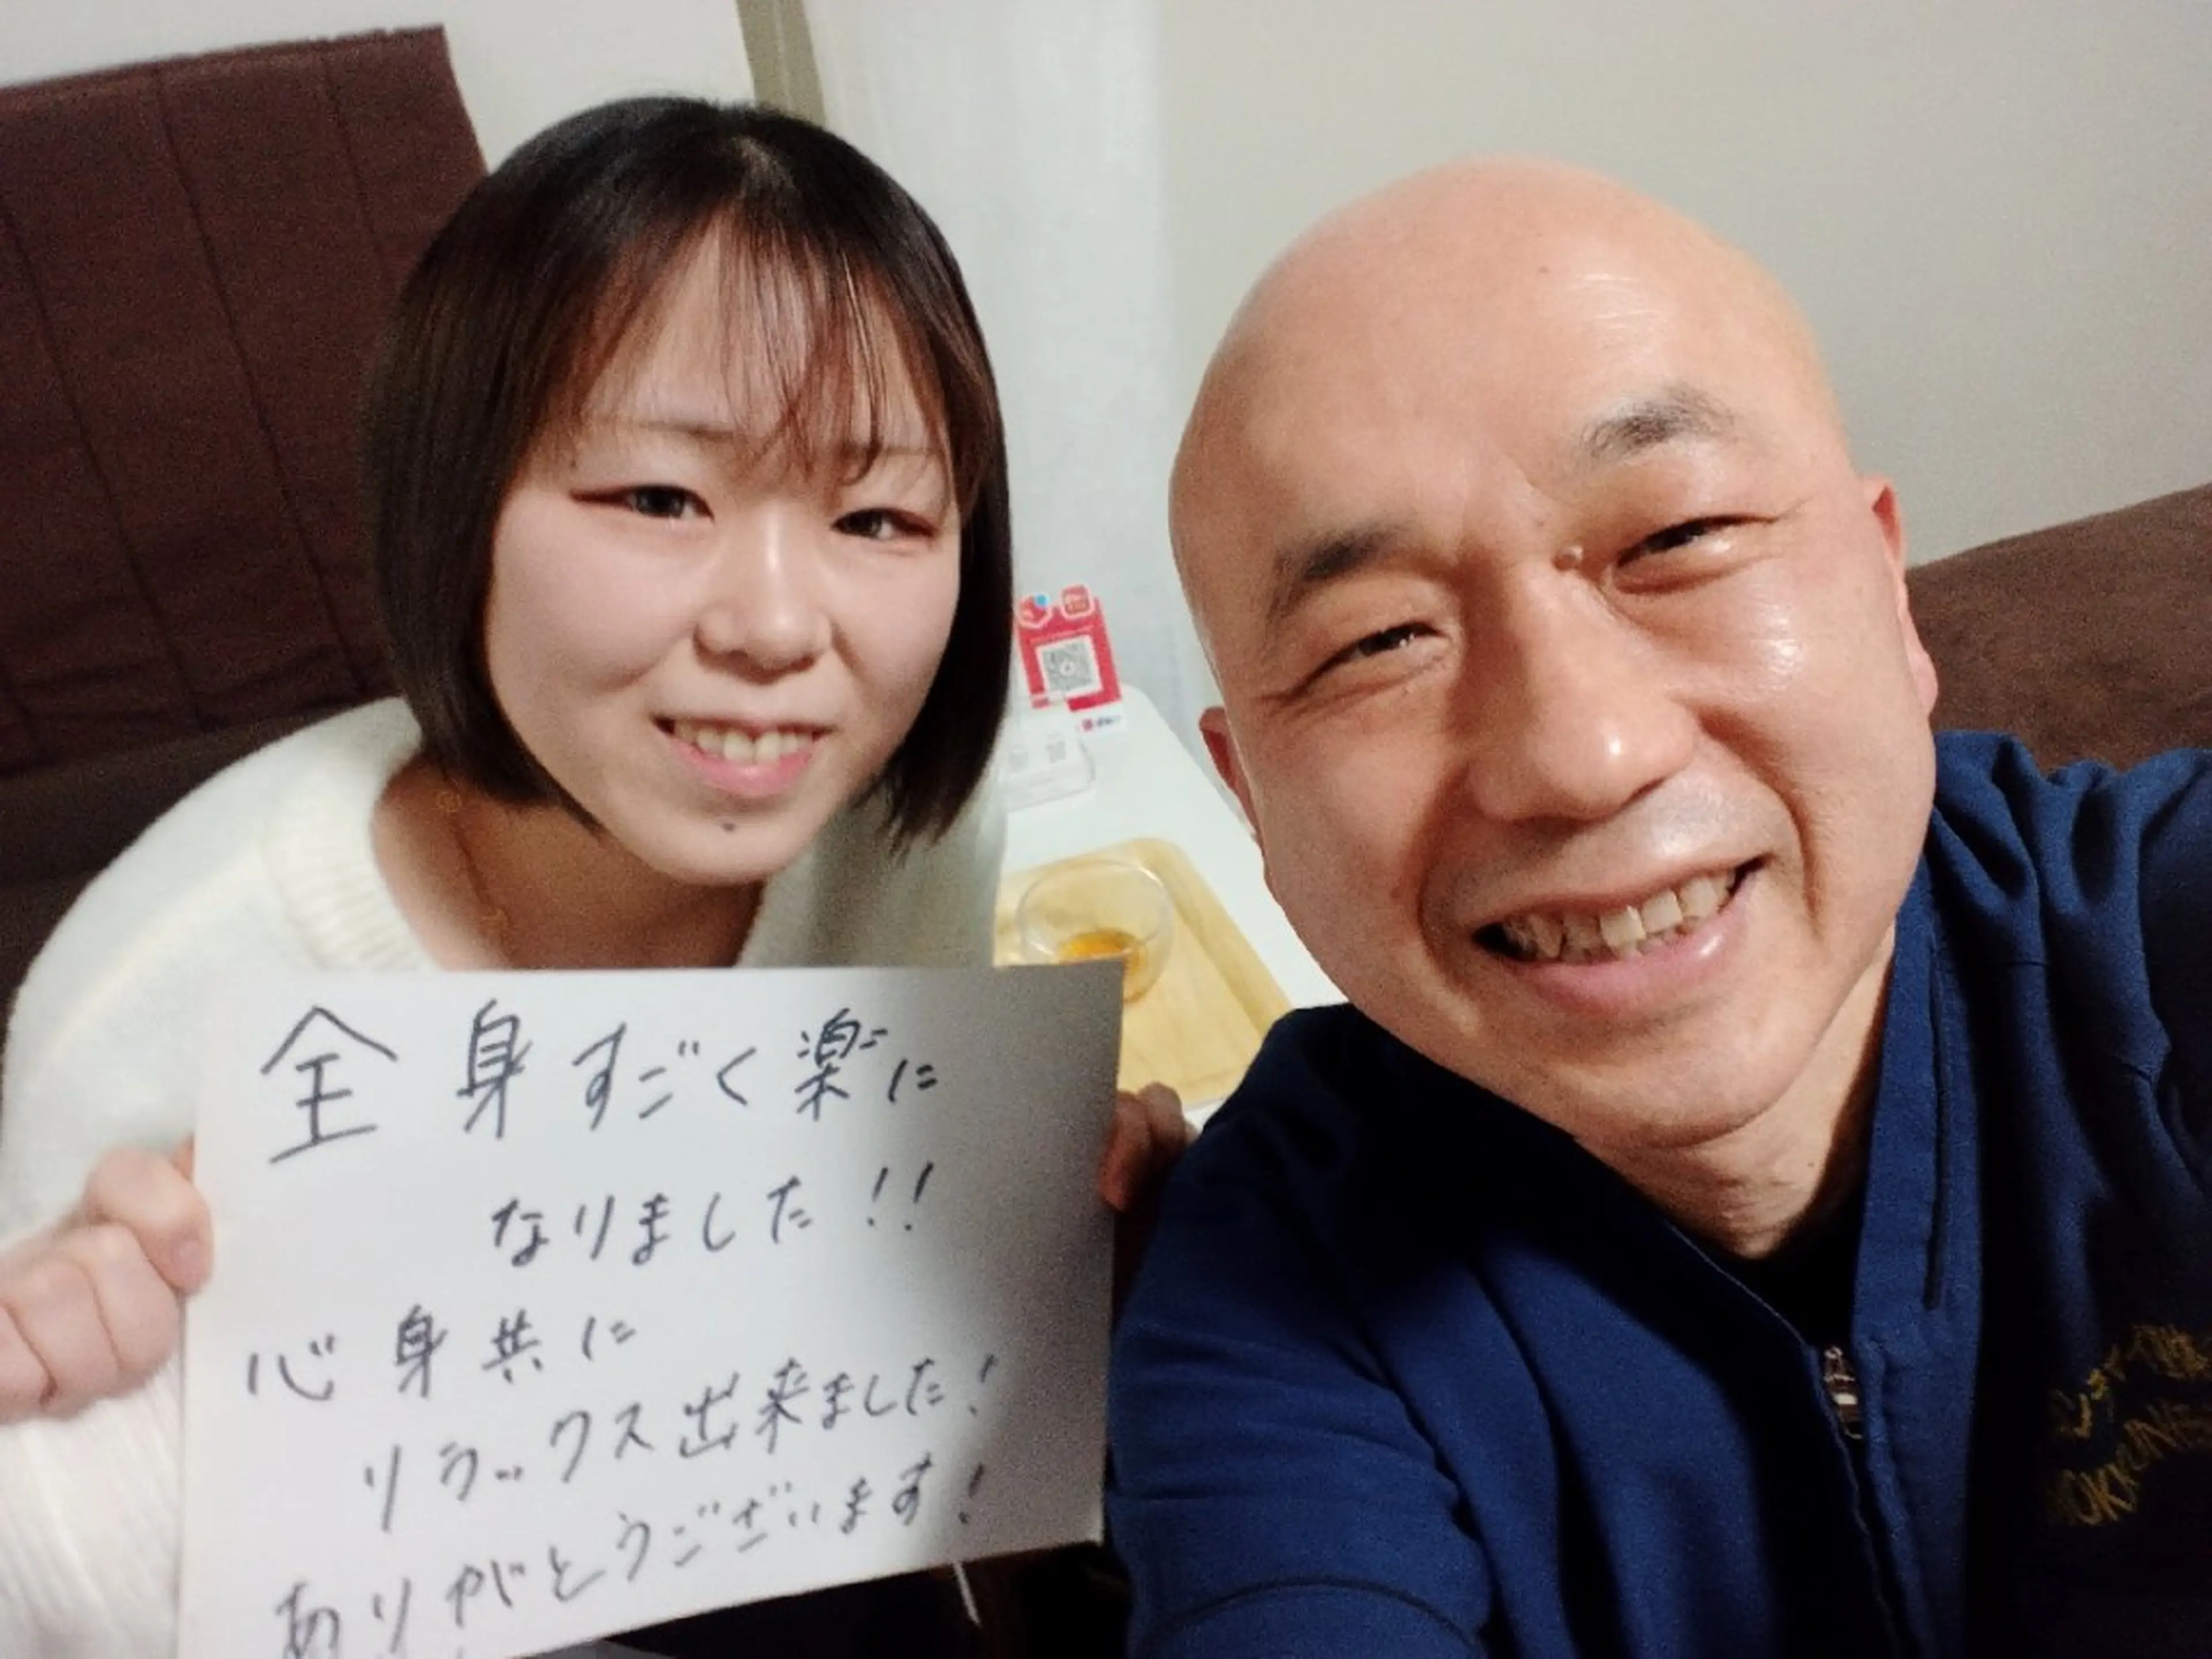 全身すごく楽に
なりました!!
心身共に
リラックス出来ました!
ありがとうございます!